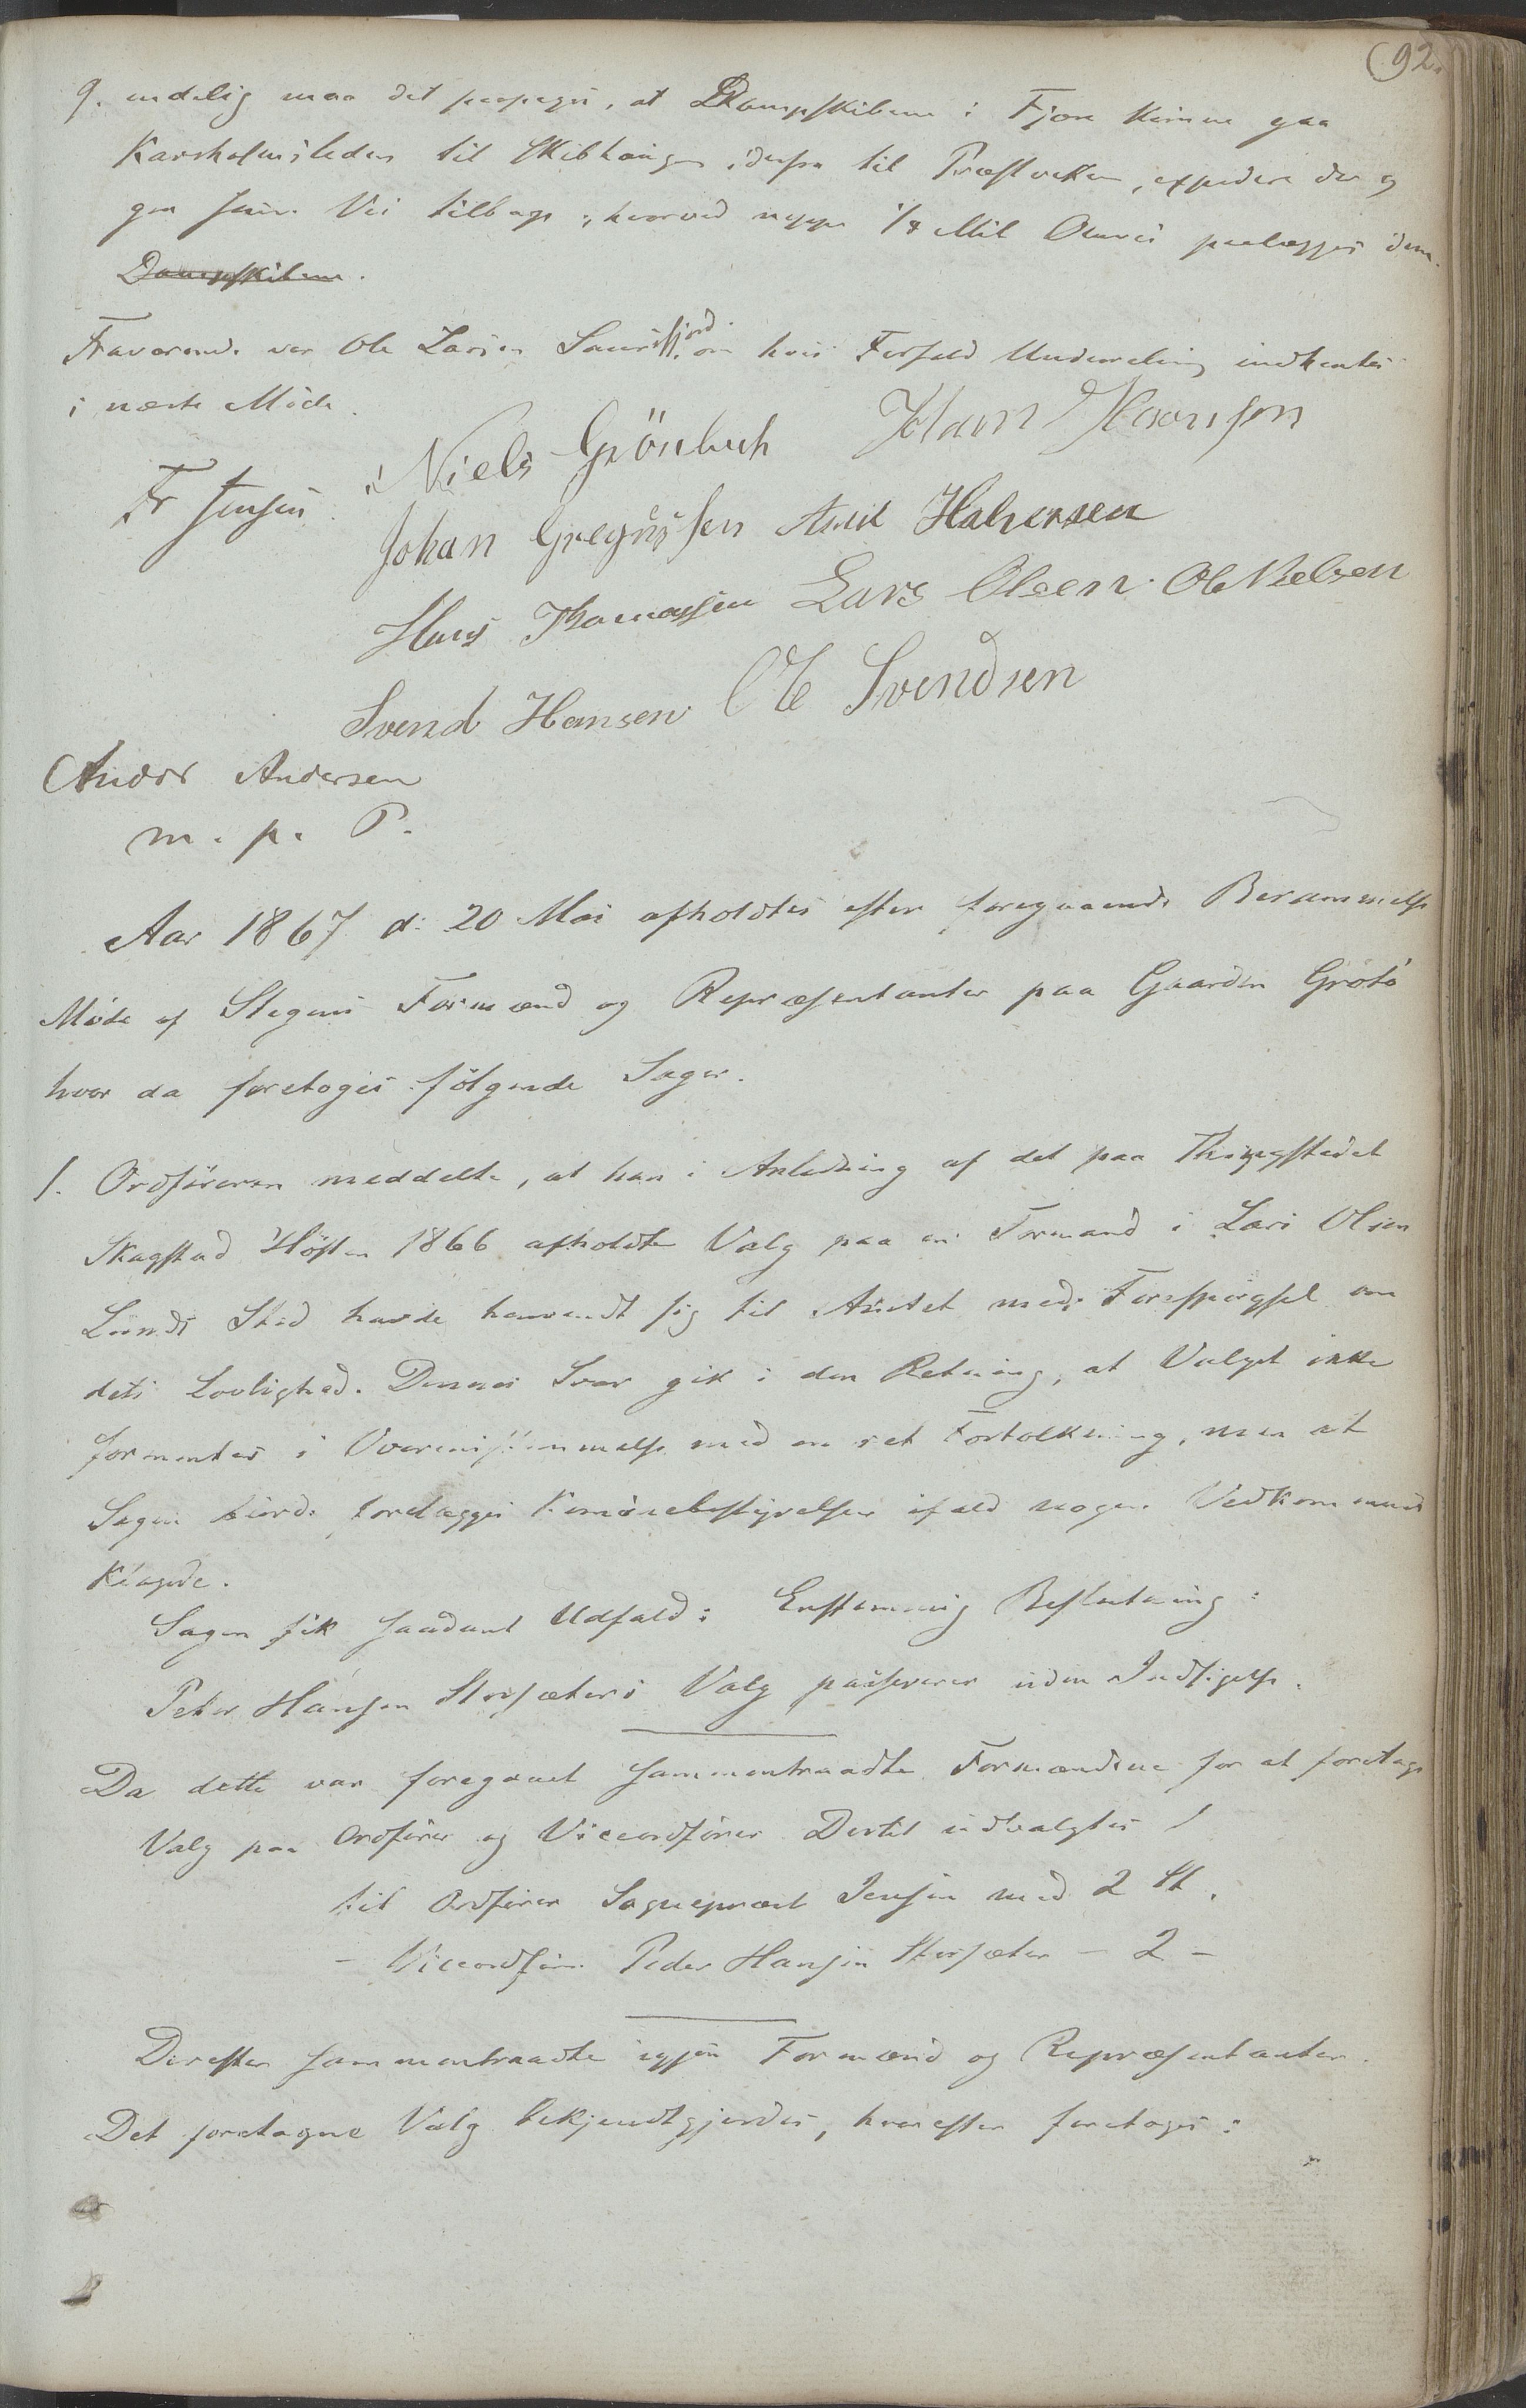 92.
9. endelig maa det paapeges, at Dampskibene i Fjon kunne gaa
Karsholmsleden til Skibhaugen, derfra til Præstvetten, expedere der og
gaa samme Vei tilbage, hvorved neppe 1/8 Mil Omvei paalægges dem.
Dampskibene.
Fraværende var Ole Larsen Saursfjord om hvis Forfald Underretning indhentes
i næste Møde.
Fr Jensen Niels Grönbech Johan Hansen
Johan Gregussen Halversen
Hans Thomassen Lars Olsen Ole Nielsen
Svend Hansen Ole Svendsen
Andor Andersen
m. p. P.
Aar 1867 d: 20 Mai afholdtes efter foregaaende Berammelse
Møde af Stegens Formænd og Repræsentanter paa Gaarden Grötö
hvor da foretoges følgende Sager.
1. Ordføreren meddelte, at han i Anledning af det paa Thingstedet
Skagstad Høsten 1866 afholdte Valg paa en Formand i Lars Olsen
Lunds Sted havde henvendt sig til Amtet med Forespørgsel om
dets Lovlighed. Dennes Svar gik i den Retning, at Valget ikke
formentes i Overensstemmelse med en ret Fortolkning, men at
Sagen burde forelægges Kommunebestyrelsen ifald nogen Vedkommende
klagede.
Sagen fik saadant Udfald: Enstemmig Beslutning:
Peter Hansen Storsæters Valg passerer uden Indsigelse.
Da dette var foregaaet sammentraadte Formændene for at foretage
Valg paa Ordfører og Viceordfører Dertil udvalgtes
til Ordfører Sognepræst Jensen med 2 St.
- Viceordfører Peder Hansen Storsæter - 2 -
Derefter sammentraadte igjen Formænd og Repræsentanter.
Det foretagne Valg bekjendtgjordes, hvorefter foretoges: